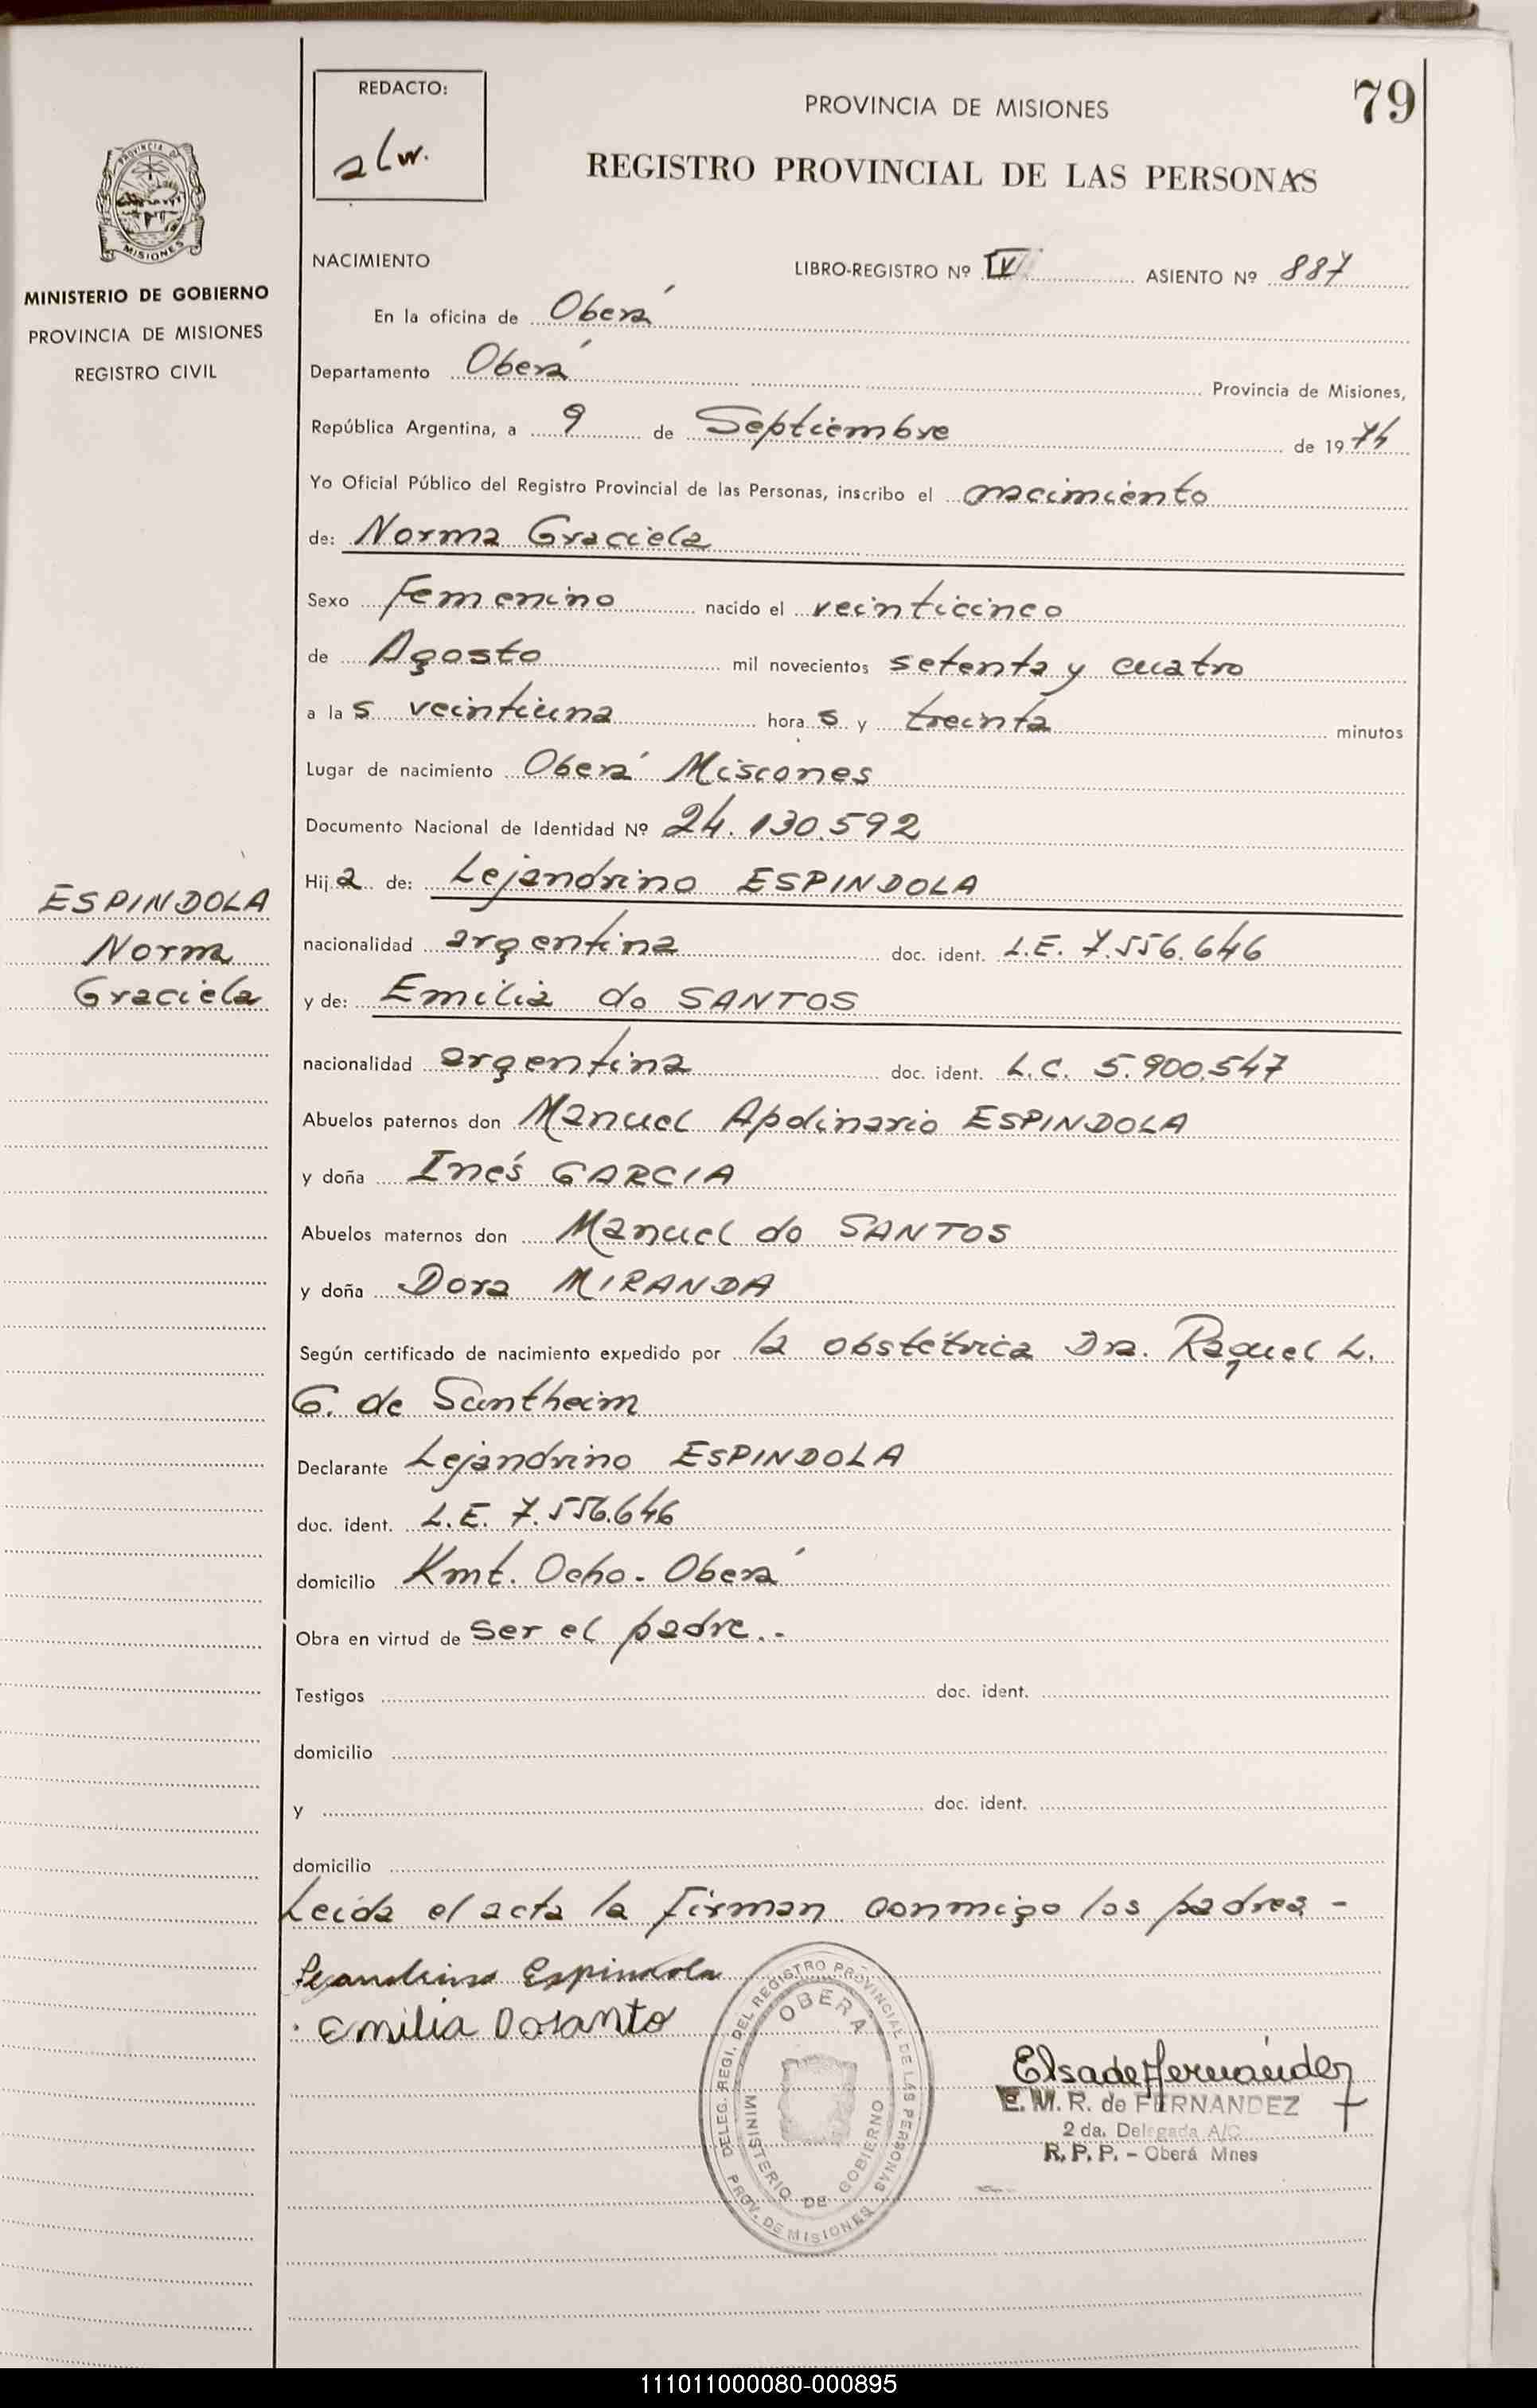 79
REDACTO:
alw.
PROVINCIA DE MISIONES
REGISTRO PROVINCIAL DE LAS PERSONAS
PROVINCIA DE
MISIONES
MINISTERIO DE GOBIERNO
PROVINCIA DE MISIONES
REGISTRO CIVIL
NACIMIENTO
LIBRO-REGISTRO Nº IV ASIENTO Nº 887
En la oficina de Oberá
Departamento Oberá Provincia de Misiones,
República Argentina, a 9 de Septiembre de 1974
Yo Oficial Público del Registro Provincial de las Personas, inscribo el nacimiento
de: Norma Graciela
Sexo Femenino nacido el veinticinco
de Agosto mil novecientos setenta y cuatro
a las veintiuna horas y treinta minutos
Lugar de nacimiento Oberá Misiones
Documento Nacional de Identidad Nº 24.130.592
Hija de: Lejandrino ESPINDOLA
ESPINDOLA
Norma
Graciela
nacionalidad argentina doc. ident. L.E. 7.556.646
y de: Emilia do SANTOS
nacionalidad argentina doc. ident. L.C. 5.900.547
Abuelos paternos don Manuel Apolinario ESPINDOLA
y doña Inés GARCIA
Abuelos maternos don Manuel do SANTOS
y doña Dora MIRANDA
Según certificado de nacimiento expedido por la obstétrica Dra. Raquel L.
G. de Suntheim
Declarante Lejandrino ESPINDOLA
doc. ident. L.E. 7.556.646
domicilio Kmt. Ocho - Oberá
Obra en virtud de ser el padre.-
Testigos doc. ident.
domicilio
y doc. ident.
domicilio
Leída el acta la firman conmigo los padres -
Lejandrino Espindola
Emilia Dosanto
DELEG. REGI. DEL REGISTRO PROVINCIAL DE LAS PERSONAS
OBERA
MINISTERIO DE GOBIERNO
PROV. DE MISIONES
Elsa de Fernández
E. M. R. de FERNANDEZ
2 da. Delegada A/C
R. P. P. - Oberá Mnes
111011000080-000895